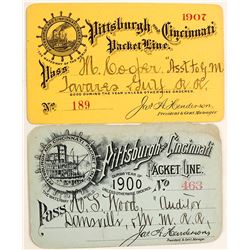 1907
Pittsburgh and Cincinnati
Packet Line.
Pass M. Cooper Asst Gy M
Tavares & Gulf R.R.
GOOD DURING THE YEAR UNLESS OTHERWISE ORDERED.
No 189
Jas A Henderson
President & Genl. Manager
Pittsburgh and Cincinnati
GOOD DURING YEAR OF 1900 PACKET LINE.
UNLESS OTHERWISE ORDERED. No 463
Pass W. S. Wood Auditor
Dansville & M R.R.
Jas A Henderson
President & Genl. Manager